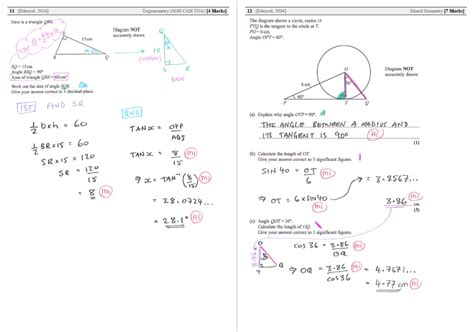 11 [Edexcel, 2010] Trigonometry (SOH CAH TOA) [4 Marks]
Here is a triangle QRS.
15cm
Diagram NOT
accurately drawn
SQ = 15cm
Angle RSQ = 90°
Area of triangle QRS = 60cm²
Work out the size of angle SQR.
Give your answer correct to 1 decimal place.
1ST FIND SR
½ b×h = 60
½ SR×15 = 60
SR×15 = 120
SR = 120/15
= 8 m1
2ND
TAN x = OPP/ADJ
TAN x = 8/15
⇒ x = TAN⁻¹(8/15) m1
= 28.0724...
= 28.1° A1
12 Mixed Geometry [7 Marks]
The diagram shows a circle, centre O.
PTQ is the tangent to the circle at T.
PO = 6cm
Angle OPT = 40°.
Diagram NOT
accurately drawn
6 cm
40°
P T Q
(a) Explain why angle OTP = 90°.
THE ANGLE BETWEEN A RADIUS AND
ITS TANGENT IS 90°
(b) Calculate the length of OT.
Give your answer correct to 3 significant figures.
SIN 40 = OT/6 m1
⇒ OT = 6×SIN40 m1
= 3.8567...
3.86 cm
(c) Angle QOT = 36°.
Calculate the length of OQ.
Give your answer correct to 3 significant figures.
3.86
T Q
COS 36 = 3.86/OQ m1
⇒ OQ = 3.86/COS36 m1
= 4.7671...
= 4.77 cm A1